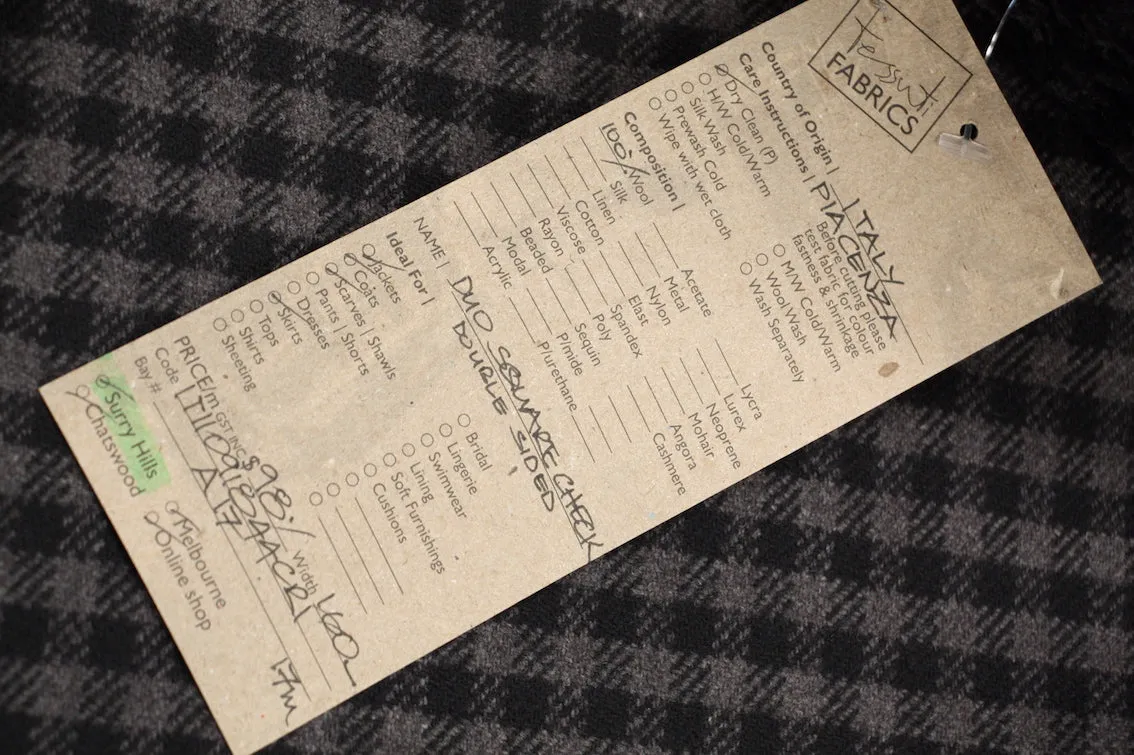 Tessuti
FABRICS
Country of Origin | ITALY
Care Instructions | PIACENZA
Dry Clean (P)
H/W Cold/Warm
Silk Wash
Prewash Cold
Wipe with wet cloth
Before cutting please
test fabric for colour
fastness & shrinkage
M/W Cold/Warm
Wool Wash
Wash Separately
Composition |
100% Wool
Silk
Linen
Cotton
Viscose
Rayon
Beaded
Modal
Acrylic
Acetate
Metal
Nylon
Elast
Spandex
Poly
Sequin
P/mide
P/urethane
Lycra
Lurex
Neoprene
Mohair
Angora
Cashmere
NAME | DUO SQUARE CHECK
DOUBLE SIDED
Ideal For |
Jackets
Coats
Scarves | Shawls
Pants | Shorts
Dresses
Skirts
Tops
Shirts
Sheeting
Bridal
Lingerie
Swimwear
Lining
Soft Furnishings
Cushions
PRICE/m GST INC $98./ Width 160
Code |
Bay # A17 17m
Surry Hills
Chatswood
Melbourne
Online shop